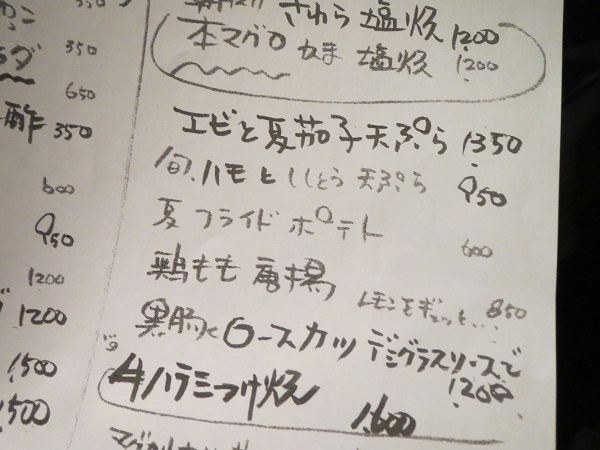 350
350
650
酢 350
600
950
1200
1200
1,500
1,500
さわら 塩焼 1200
本マグロ かま 塩焼 1200
エビと夏茄子天ぷら 1350
旬ハモとししとう天ぷら 950
夏フライドポテト 600
鶏もも唐揚 レモンをギュッと… 850
黒豚ロースカツ デミグラスソースで 1,200
牛ハラミつけ焼 1,600